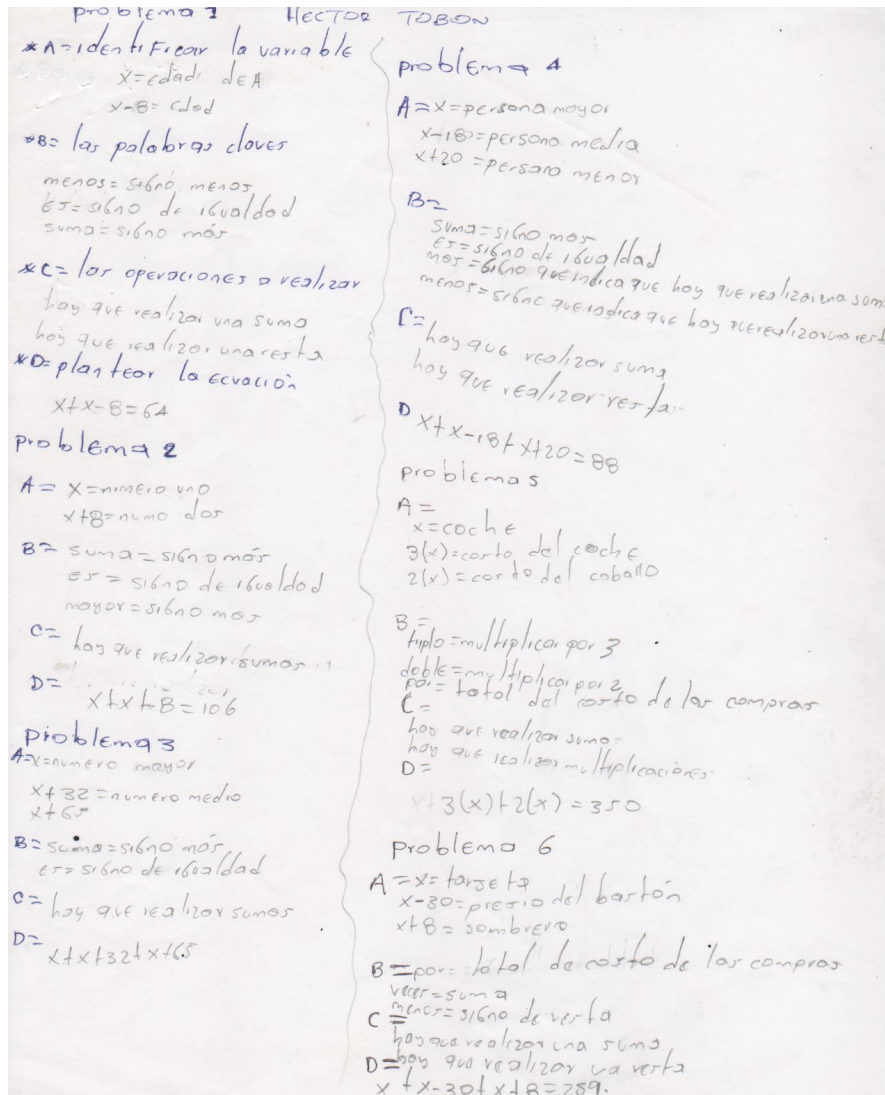 problema 1 HECTOR TOBON
*A=identificar la variable
x=edad de A
x-8=edad
*B= las palabras claves
menos=signo menos
es=signo de igualdad
suma=signo más
*C= las operaciones a realizar
hay que realizar una suma
hay que realizar una resta
*D=plantear la ecuación
x+x-8=64
problema 2
A= x=número uno
x+8=numo dos
B= suma=signo más
es=signo de igualdad
mayor=signo mas
C=
hay que realizar sumas
D=
x+x+8=106
problema 3
A=x=numero mayor
x+32=numero medio
x+65
B=suma=signo más
es=signo de igualdad
C=
hay que realizar sumas
D=
x+x+32+x+65
problema 4
A=x=persona mayor
x-18=persona media
x+20=persona menor
B=
suma=signo mas
es=signo de igualdad
mas=signo que indica que hay que realizar una suma
menos=signo que indica que hay que realizar una rest
C=
hay que realizar suma
hay que realizar resta
D
x+x-18+x+20=88
problema 5
A=
x=coche
3(x)=costo del coche
2(x)=costo del caballo
B=
triplo=multiplicar por 3
doble=multiplicar por 2
por=total del costo de las compras
C=
hay que realizar sumas
hay que realizar multiplicaciones
D=
x+3(x)+2(x)=350
problema 6
A=x=tarjeta
x-30=presio del bastón
x+8=sombrero
B=por=total de costo de las compras
veces=suma
menos=signo de resta
C=
hay que realizar una suma
D=hay que realizar una resta
x+x-30+x+8=259.